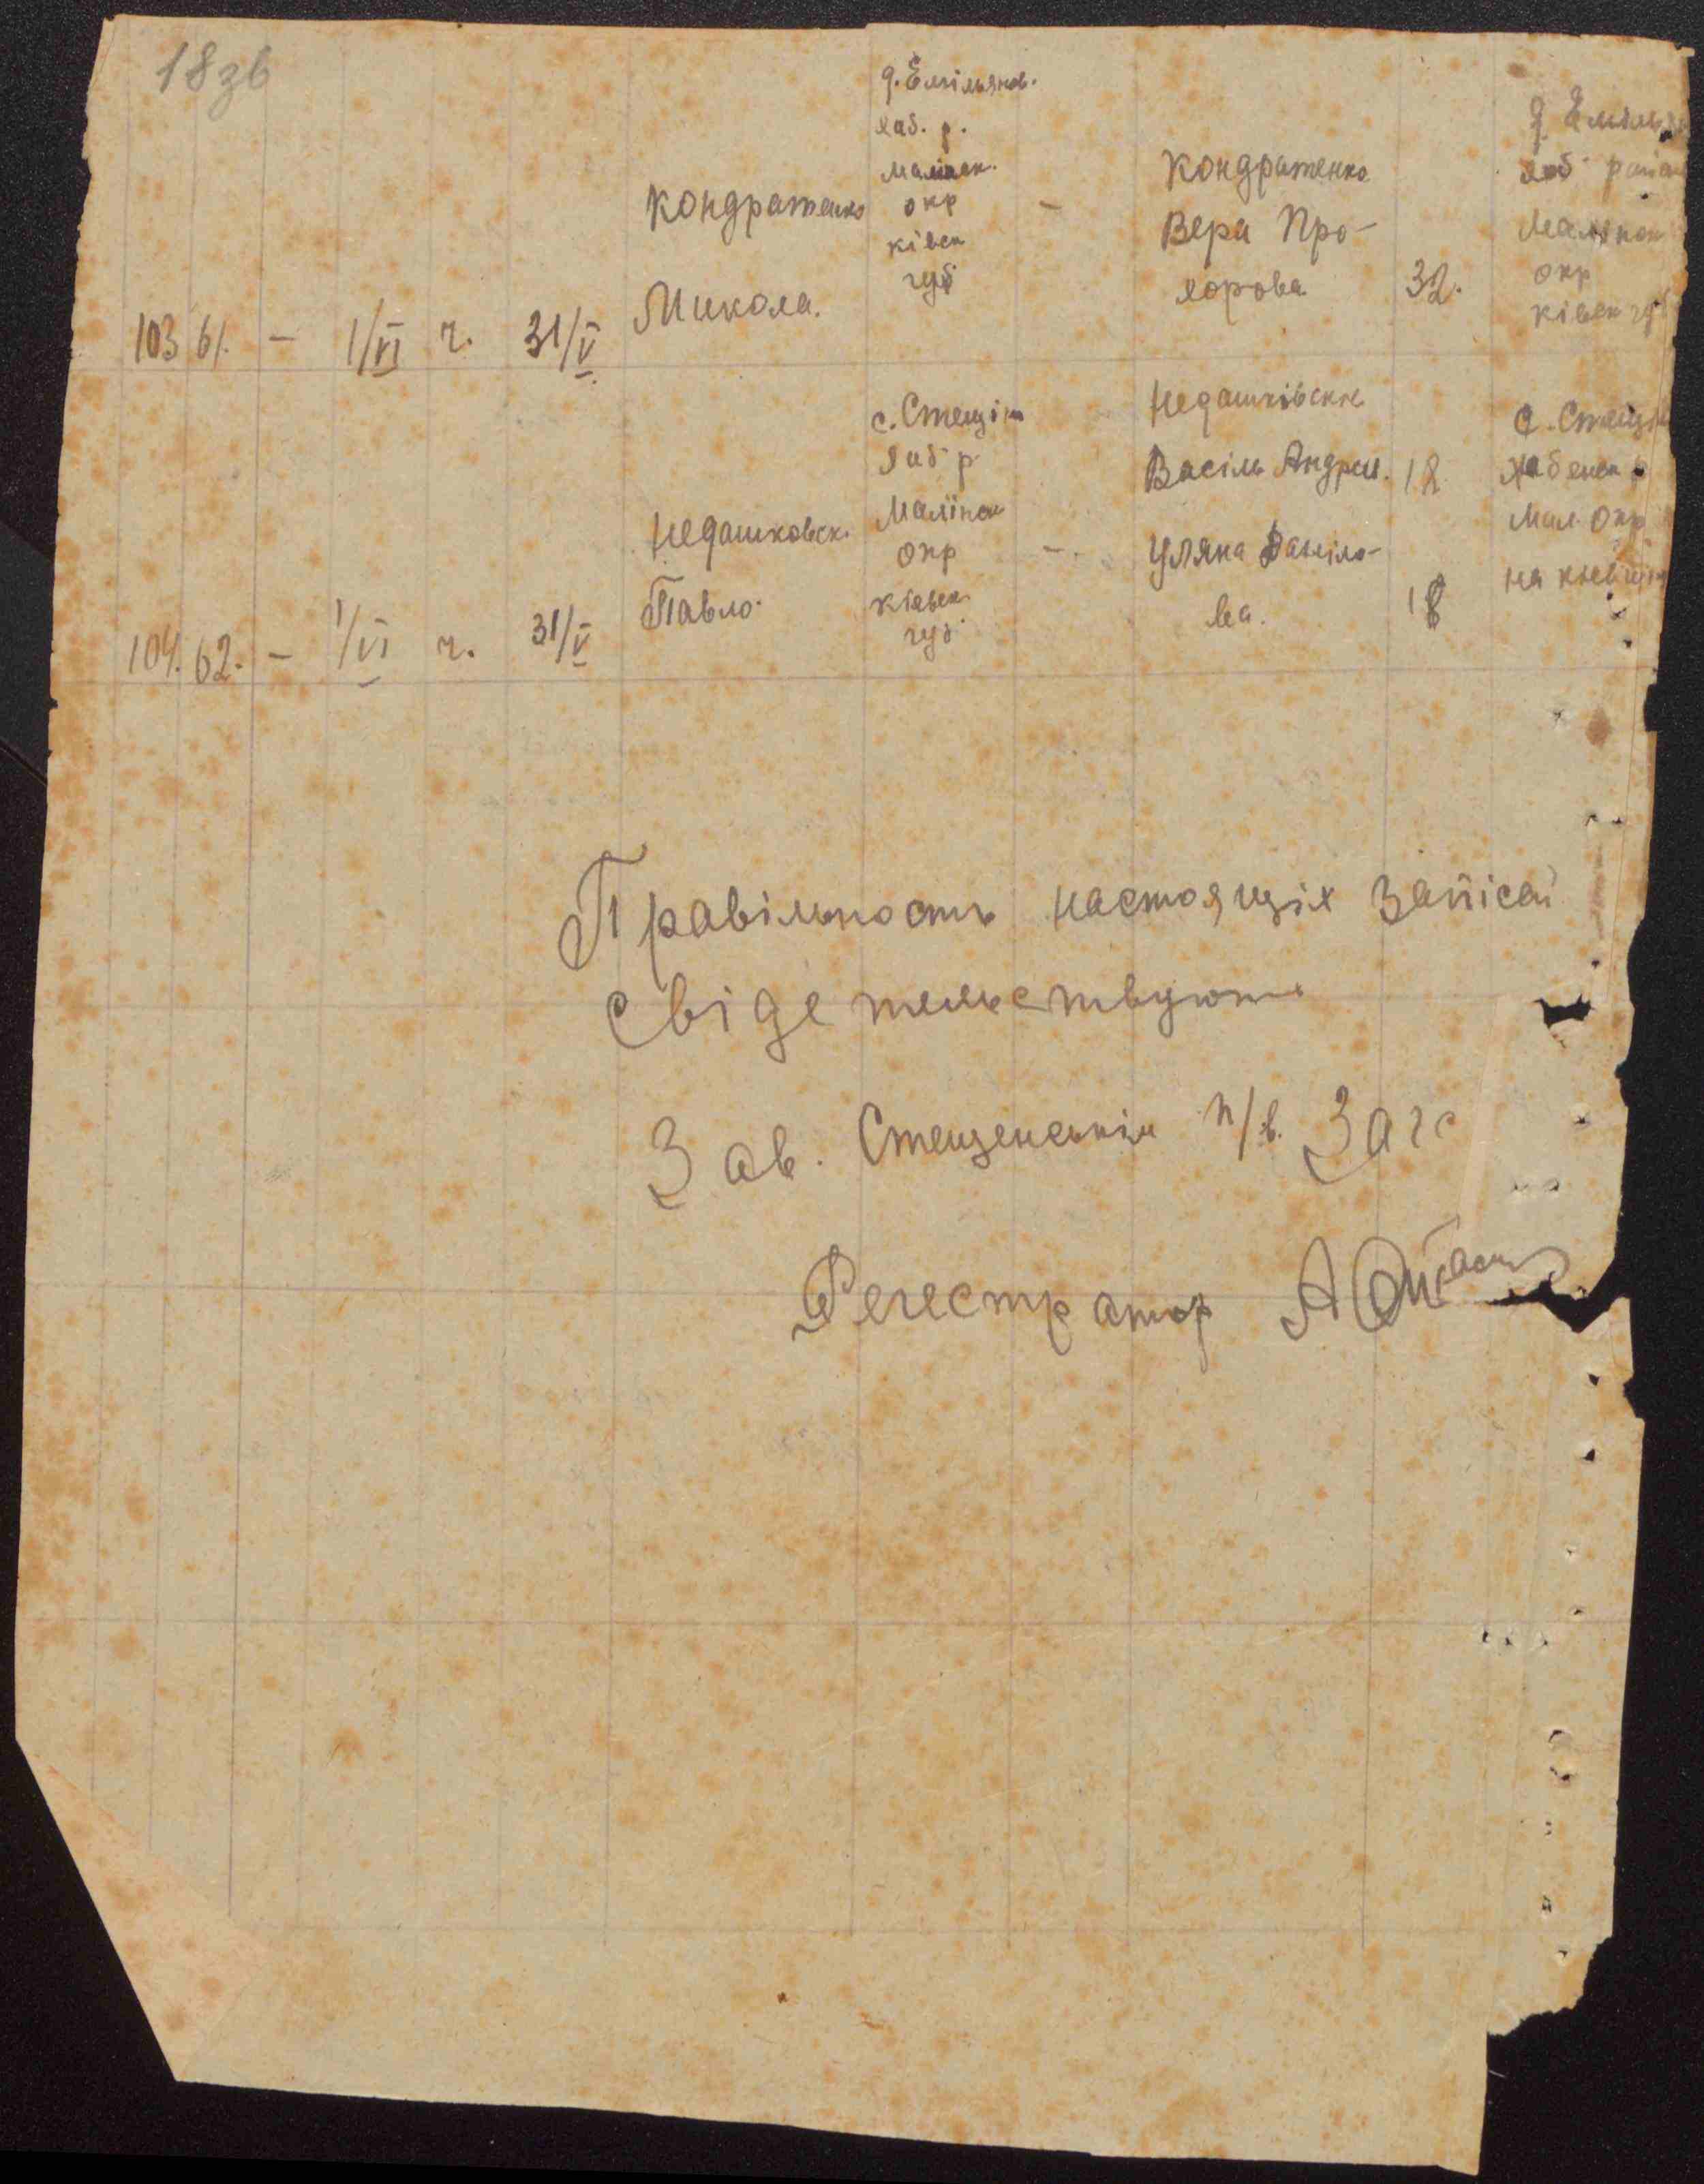 18зв
103 61. - 1/VI ч. 31/V
Кондратенко
Микола.
д. Емільянов.
Хаб. р.
Малинск.
окр
київск
губ
-
Кондратенко
Вера Про-
хорова 32.
д Емільян
Хаб район
Малинск
окр
київск губ
104. 62. - 1/VI ч. 31/V
Недашковск.
Павло.
с. Стещін
Хаб р
Малінск
окр
київск
губ
-
Недашківски
Васіль Андреи. 18
Уляна Даніло-
ва. 18
с. Стещін
Хабенск р
Мал. окр
на киевщин
Правільность настоящіх запісей
свідетельствують
Зав. Стещенськім п/в. Загс
Регестратор